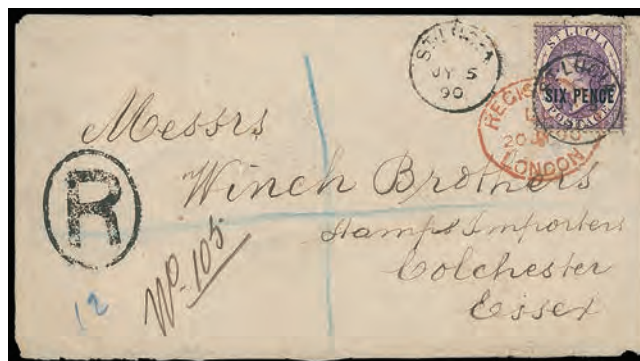 ST. LUCIA
JY 5
90
ST. LUCIA
SIX PENCE
POSTAGE
ST. LUCIA
REGIS
20 JY 90
LONDON
Messrs
Winch Brothers
Stamps Importers
Colchester
Essex
R
No. 105
12